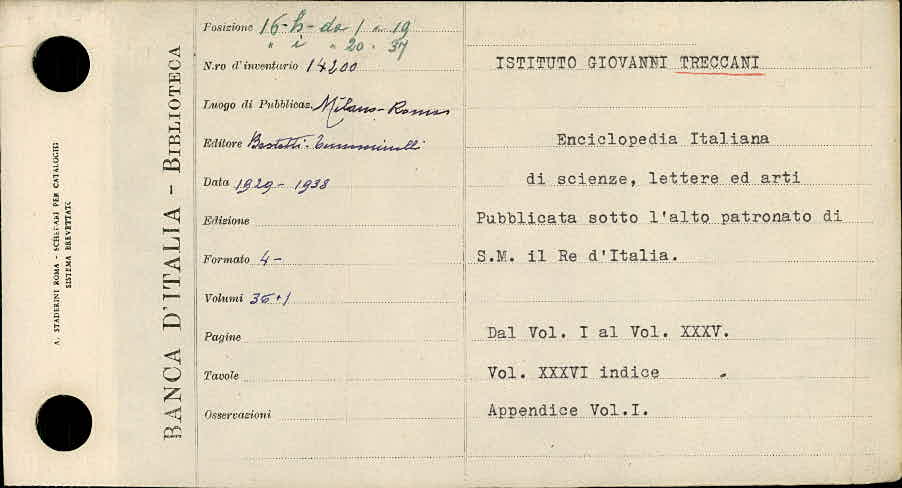 A. STADERINI ROMA - SCHEDARI PER CATALOGHI
SISTEMA BREVETTATO
BANCA D'ITALIA - BIBLIOTECA
Posizione 16-h- da 1 a 19
" i " 20 " 37
N.ro d'inventario 14200
Luogo di Pubblicaz. Milano - Roma
Editore Bestetti - Tumminelli
Data 1929 - 1938
Edizione
Formato 4-
Volumi 36+1
Pagine
Tavole
Osservazioni
ISTITUTO GIOVANNI TRECCANI
Enciclopedia Italiana
di scienze, lettere ed arti
Pubblicata sotto l'alto patronato di
S.M. il Re d'Italia.
Dal Vol. I al Vol. XXXV.
Vol. XXXVI indice
Appendice Vol.I.